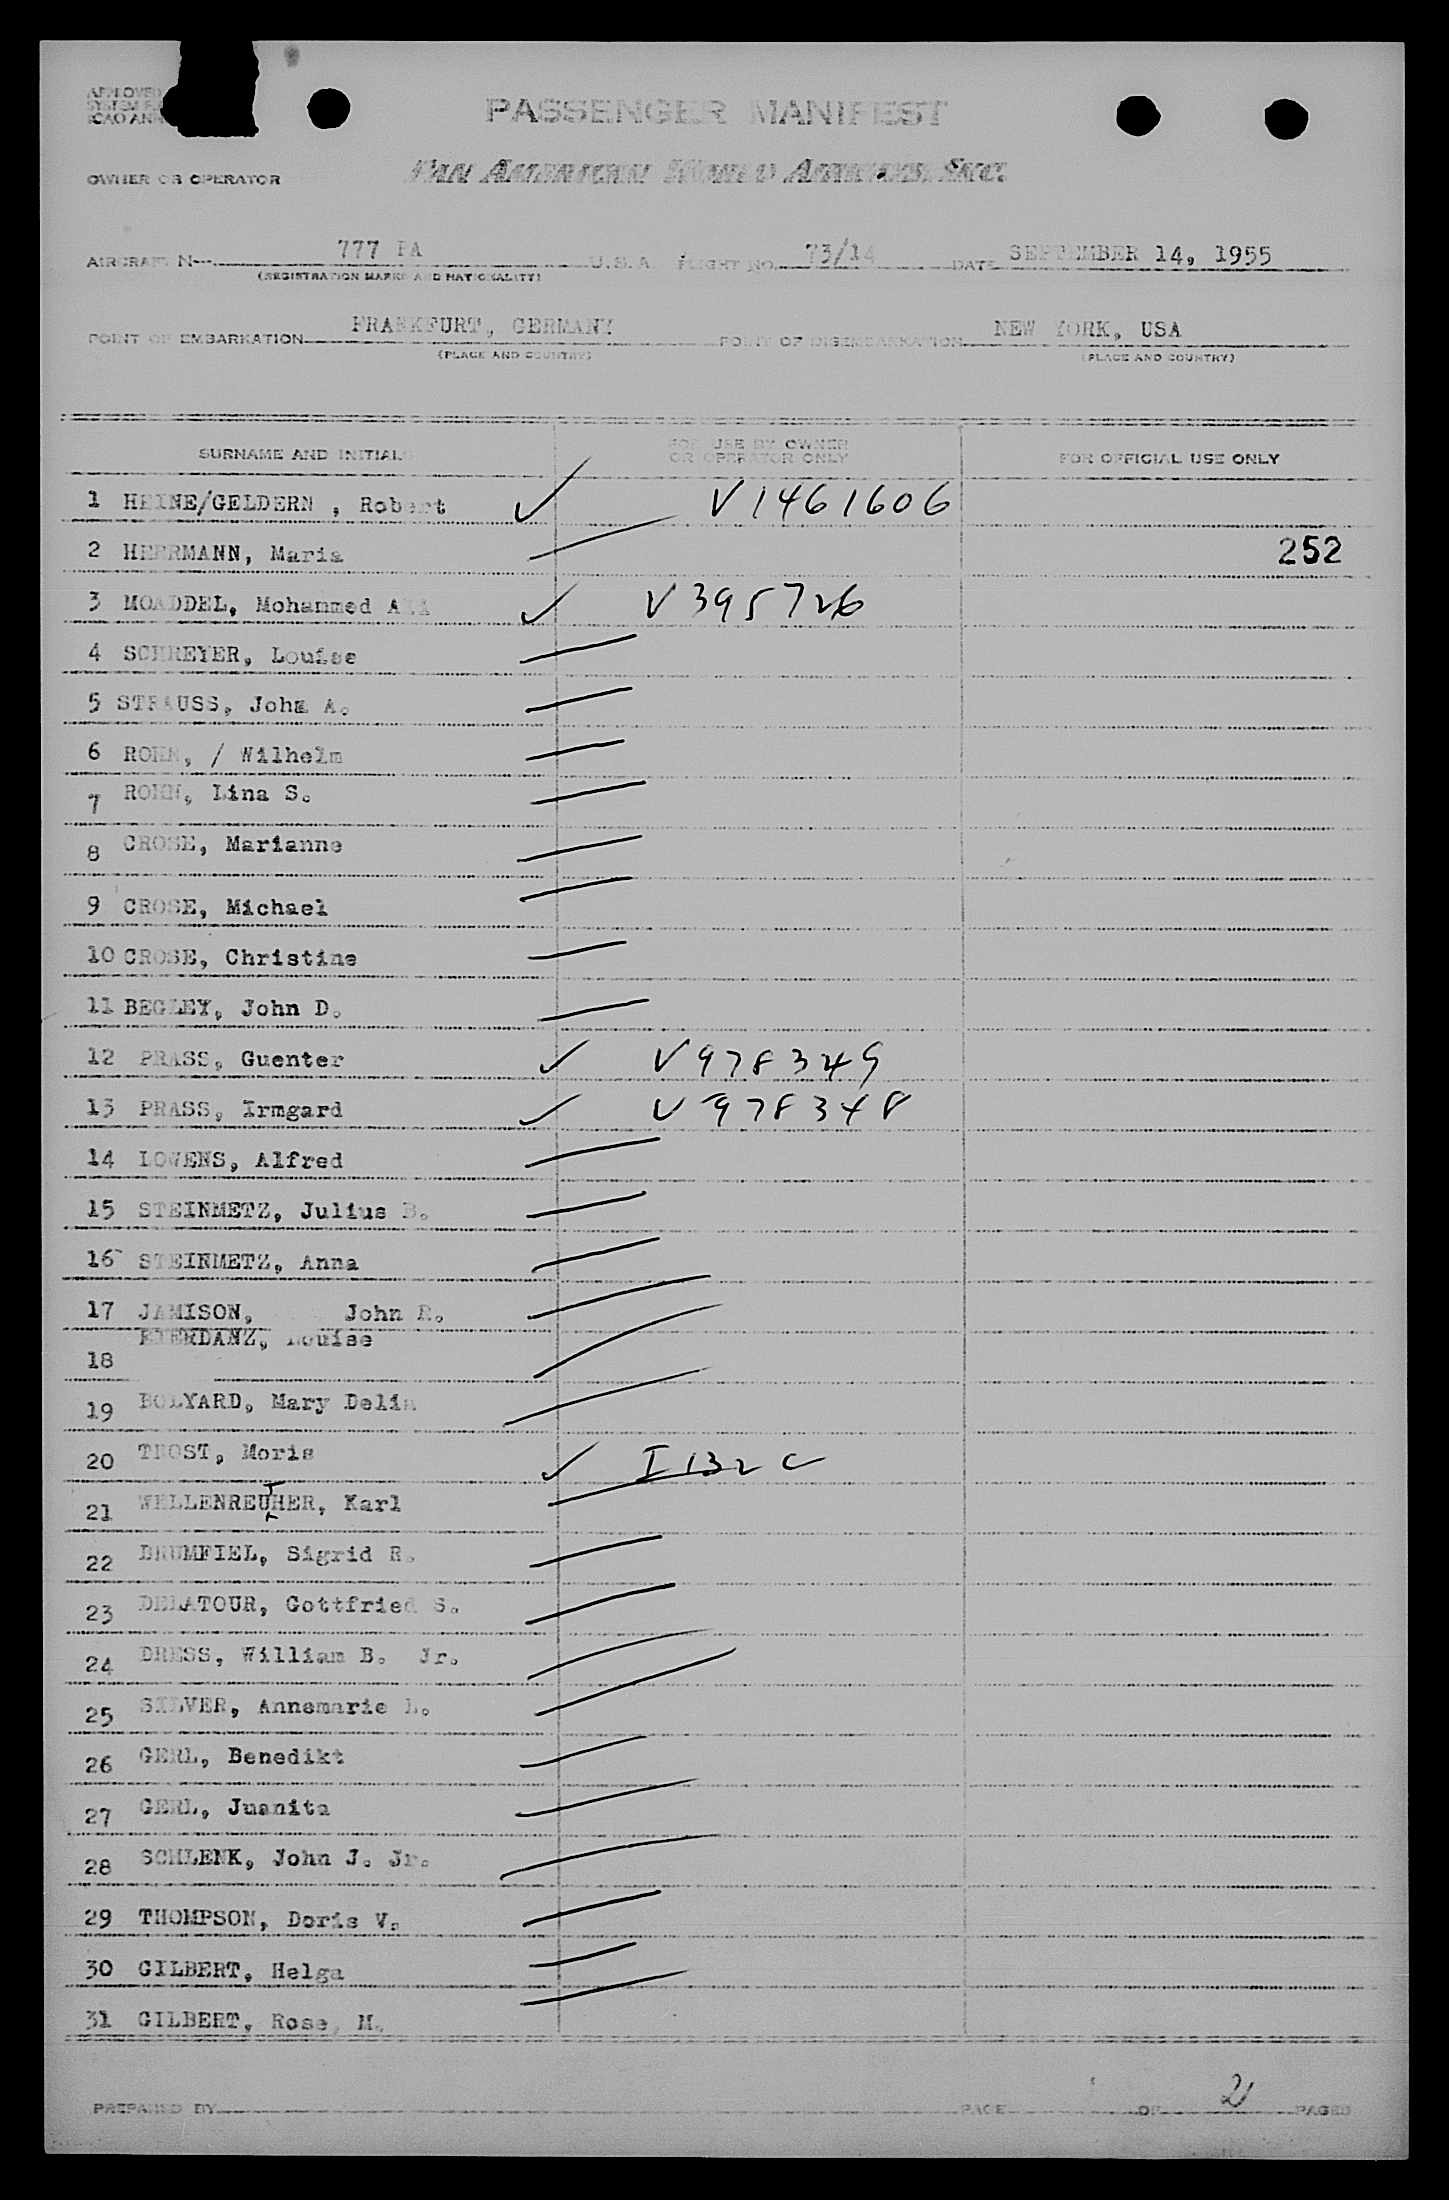 APPROVED
SYSTEM
ICAO ANN
PASSENGER MANIFEST
OWNER OR OPERATOR PAN AMERICAN WORLD AIRWAYS, INC.
AIRCRAFT N— 777 PA U.S.A. FLIGHT NO. 73/14 DATE SEPTEMBER 14, 1955
(REGISTRATION MARKS AND NATIONALITY)
POINT OF EMBARKATION FRANKFURT, GERMANY POINT OF DISEMBARKATION NEW YORK, USA
(PLACE AND COUNTRY) (PLACE AND COUNTRY)
SURNAME AND INITIALS FOR USE BY OWNER OR OPERATOR ONLY FOR OFFICIAL USE ONLY
1 HEINE/GELDERN , Robert ✓ V1461606
2 HERRMANN, Maria 252
3 MOADDEL, Mohammed Ali ✓ V395726
4 SCHREYER, Louise
5 STRAUSS, John A.
6 ROHN, / Wilhelm
7 ROHN, Lina S.
8 CROSE, Marianne
9 CROSE, Michael
10 CROSE, Christine
11 BEGLEY, John D.
12 PRASS, Guenter ✓ V978349
13 PRASS, Irmgard ✓ V978348
14 LOWENS, Alfred
15 STEINMETZ, Julius B.
16 STEINMETZ, Anna
17 JAMISON, John R.
18 BIERDANZ, Louise
19 BOLYARD, Mary Delia
20 TROST, Moris ✓ I 132 C
21 WELLENREUTHER, Karl
22 BRUMFIEL, Sigrid R.
23 DELATOUR, Gottfried S.
24 DRESS, William B. Jr.
25 SILVER, Annemarie L.
26 GERL, Benedikt
27 GERL, Juanita
28 SCHLENK, John J. Jr.
29 THOMPSON, Doris V.
30 GILBERT, Helga
31 GILBERT, Rose M.
PREPARED BY PAGE OF 2 PAGES